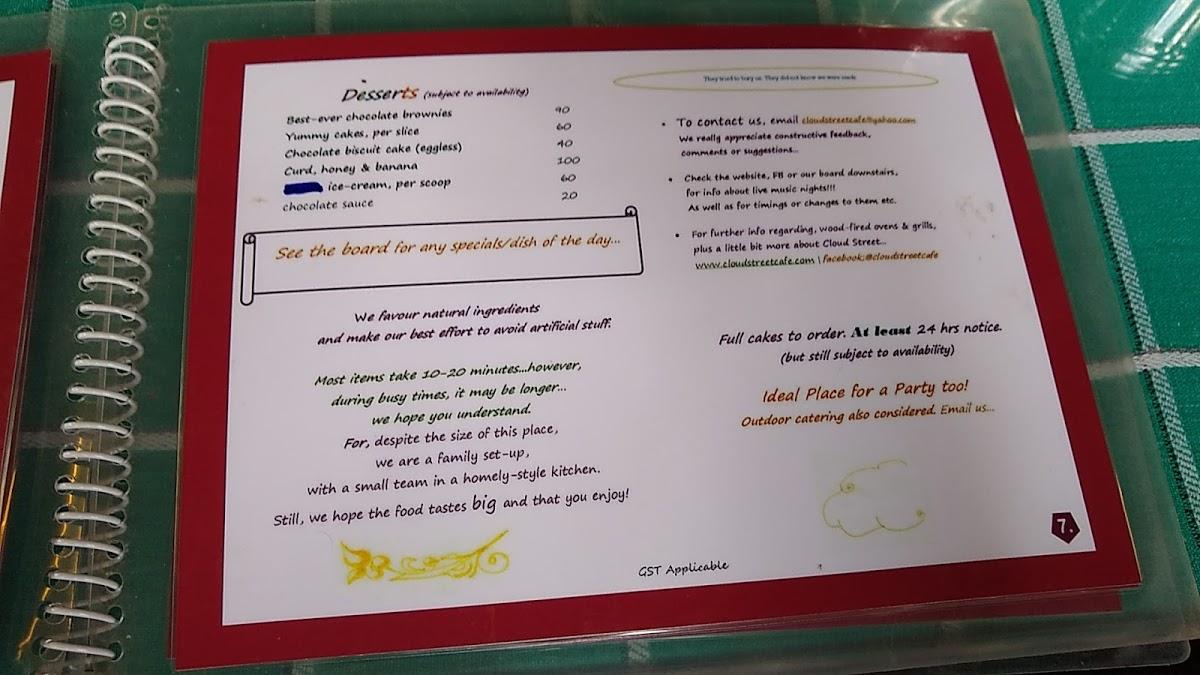 Desserts (subject to availability)
Best-ever chocolate brownies 90
Yummy cakes, per slice 60
Chocolate biscuit cake (eggless) 40
Curd, honey & banana 100
ice-cream, per scoop 60
chocolate sauce 20
See the board for any specials/dish of the day...
We favour natural ingredients
and make our best effort to avoid artificial stuff.
Most items take 10-20 minutes...however,
during busy times, it may be longer...
we hope you understand.
For, despite the size of this place,
we are a family set-up,
with a small team in a homely-style kitchen.
Still, we hope the food tastes big and that you enjoy!
They tried to bury us. They did not know we were seeds.
• To contact us, email cloudstreetcafe@yahoo.com
We really appreciate constructive feedback,
comments or suggestions...
• Check the website, FB or our board downstairs,
for info about live music nights!!!
As well as for timings or changes to them etc.
• For further info regarding, wood-fired ovens & grills,
plus a little bit more about Cloud Street...
www.cloudstreetcafe.com | facebook:@cloudstreetcafe
Full cakes to order. At least 24 hrs notice.
(but still subject to availability)
Ideal Place for a Party too!
Outdoor catering also considered. Email us...
GST Applicable
7.